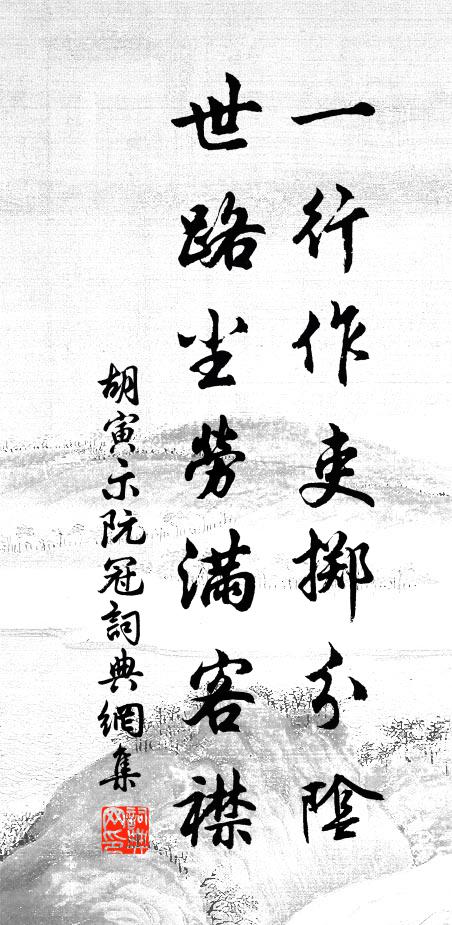 一行作吏擲分陰
世路尘勞滿客襟
胡寅示阮冠詞典網集
詞典网印